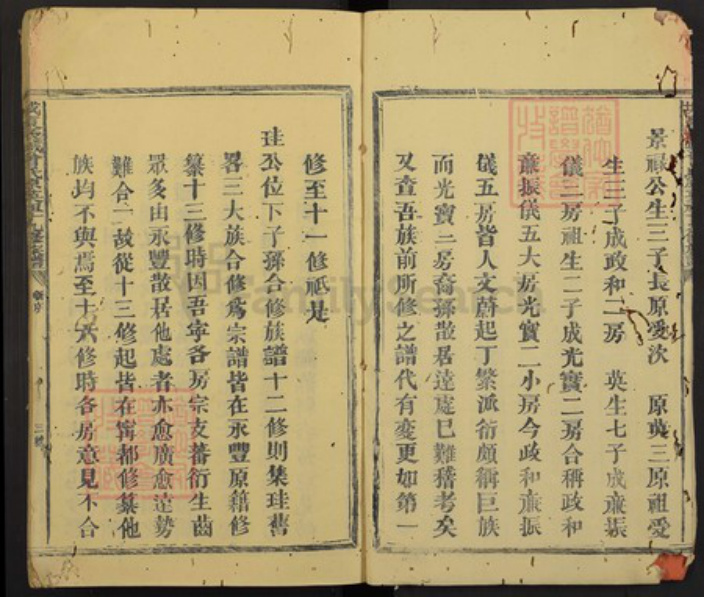 景祿公生三子長原愛次 原英三原祖愛
生三子成政和二房 英生七子成肅振
儀二房祖生二子成光實二房合稱政和
肅振儀五大房光實二小房今政和肅振
儀五房皆人文蔚起丁繁派衍頗稱巨族
而光寶二房裔孫散居遠處已難稽考矣
又查吾族前所修之譜代有變更如第一
修至十一修祇是
珪公位下子孫合修族譜十二修則集珪
畧三大族合修爲宗譜皆在永豐原籍修
纂十三修時因吾寧各房宗支蕃衍生齒
眾多由永豐散居他處者亦愈廣愈遠勢
難合一故從十三修起皆在甯都修纂他
族均不與焉至十六修時各房意見不合
FamilySearch